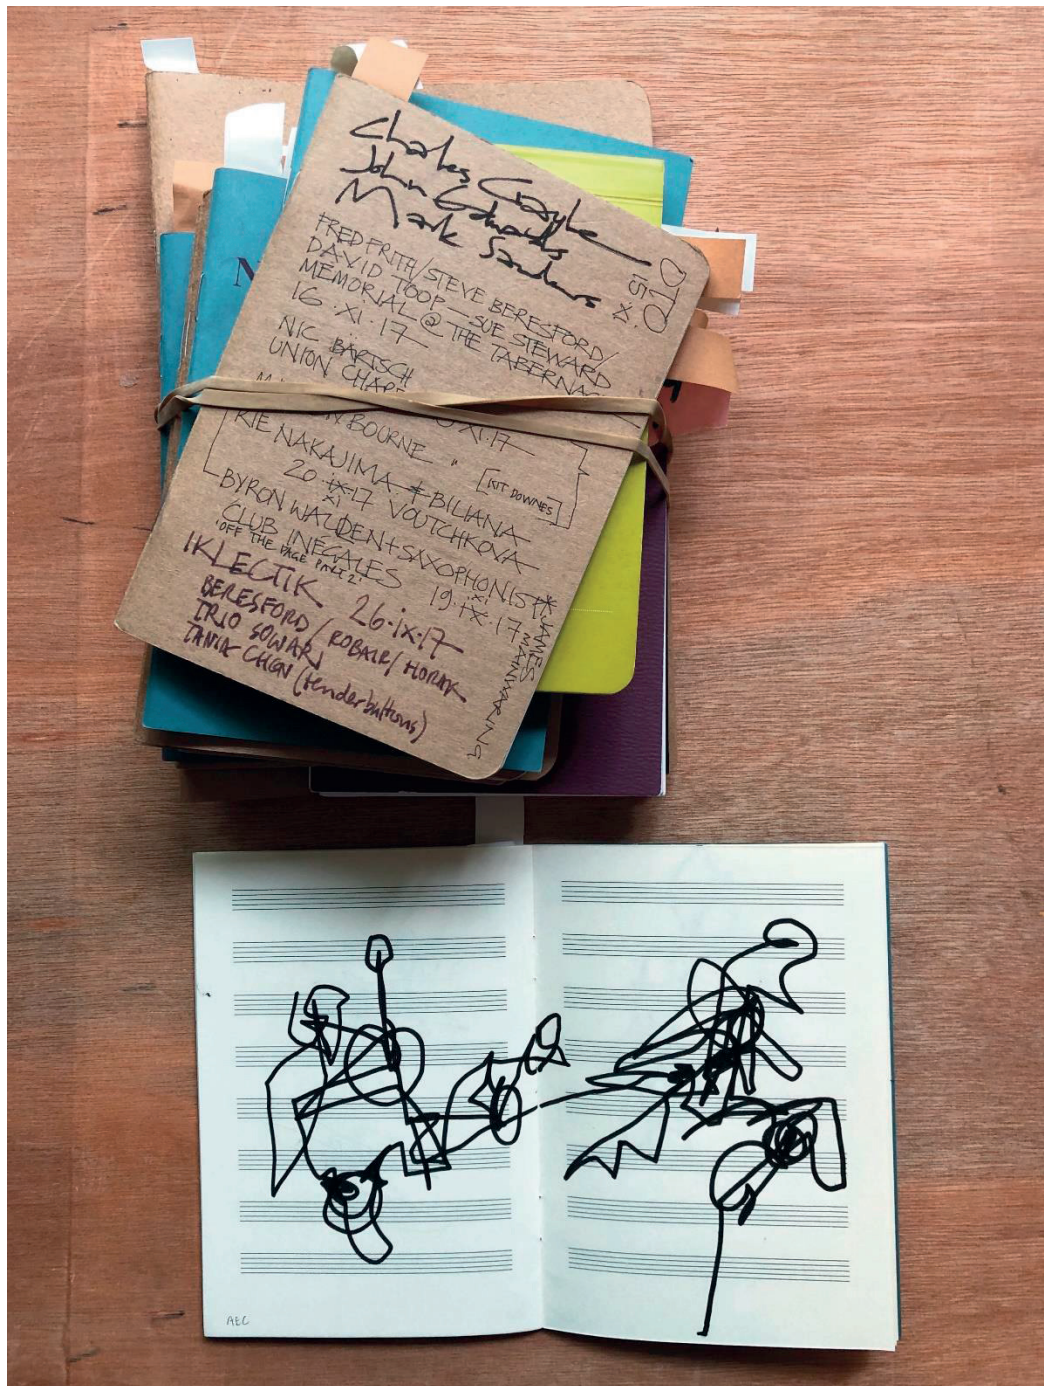 Charles Gayle
John Edwards
Mark Sanders
OTO
15. X.
FRED FRITH/STEVE BERESFORD/
DAVID TOOP - SUE STEWARD
MEMORIAL @ THE TABERNAC
16.XI.17
NIC BÄRTSCH
UNION CHAPE
XI.17
BOURNE "
[KIT DOWNES]
RIE NAKAJIMA + BILIANA
20 ix.17 VOUTCHKOVA
xi
BYRON WALLEN + SAXOPHONIST*
CLUB INÉGALES 19.ix.17
xi
'OFF THE PAGE PART 2'
* JAMES
MAINWARING
IKLECTIK 26.ix.17
BERESFORD/ROBAIR/HORAK
TRIO SOWARI
TANIA CHEN (tenderbuttons)
N
AEC